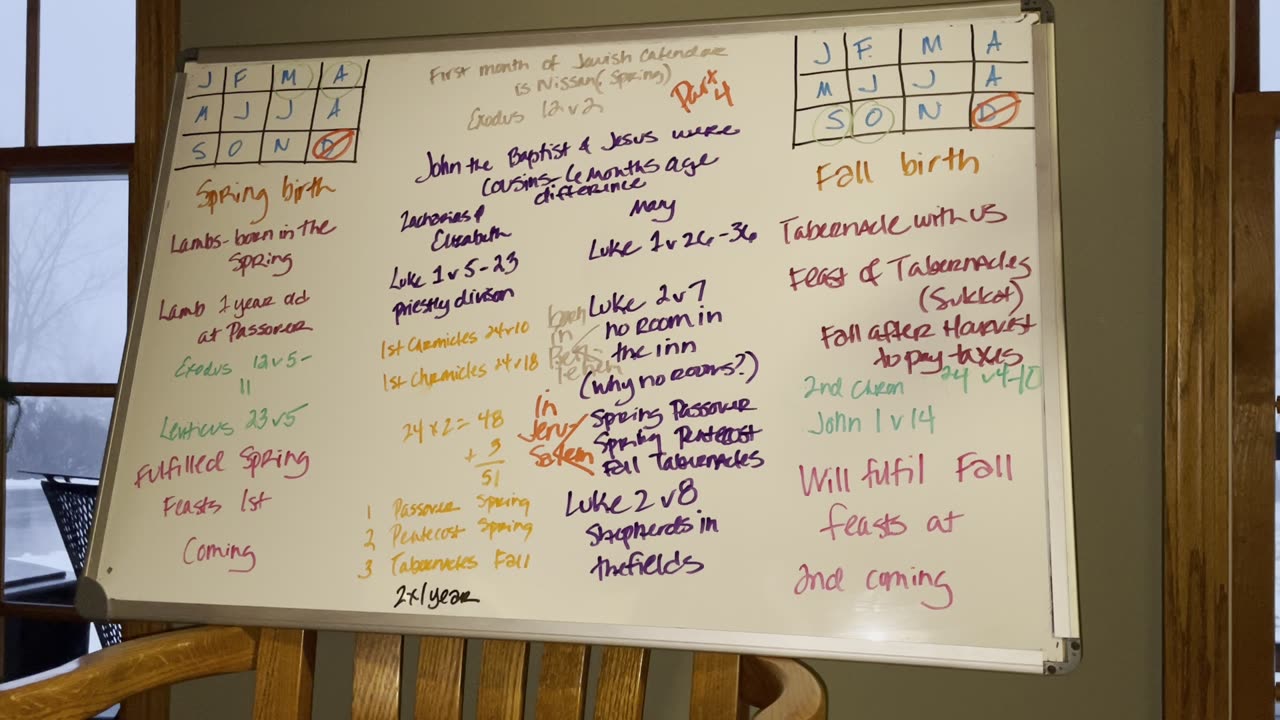 J F M A
M J J A
S O N D
Spring birth
Lambs-born in the
Spring
Lamb 1 year old
at Passover
Exodus 12v5-
11
Leviticus 23v5
Fulfilled Spring
Feasts 1st
Coming
First month of Jewish Calendar
is Nissan (Spring)
Exodus 12v2
Part
4
John the Baptist & Jesus were
cousins-6 months age
difference
Zacharias &
Elizabeth
Luke 1v5-23
priestly divison
1st Chronicles 24v10
1st Chronicles 24v18
24x2=48
+3
51
1 Passover Spring
2 Pentecost Spring
3 Tabernacles Fall
2x/year
Mary
Luke 1v26-36
Luke 2v7
no room in
the inn
(why no rooms?)
born
in
Beth-
lehem
In
Jeru-
Salem
Spring Passover
Spring Pentecost
Fall Tabernacles
Luke 2v8
Shepherds in
the fields
J F. M A
M J J A
S O N D
Fall birth
Tabernacle with us
Feast of Tabernacles
(Sukkot)
Fall after Harvest
to pay taxes
2nd Chron 24v4-10
John 1v14
Will fulfil Fall
feasts at
2nd coming